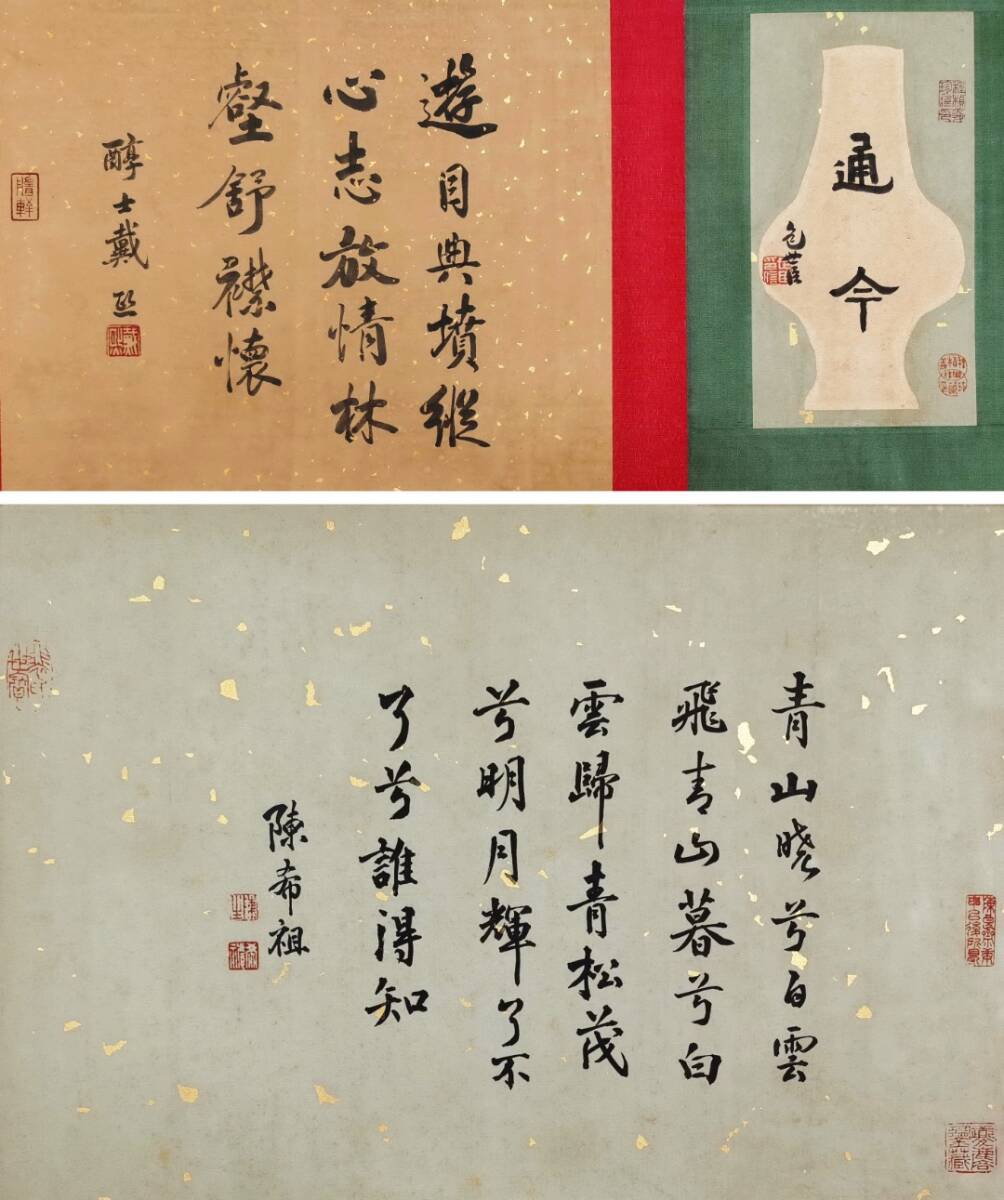 通今
包世臣
遊目典墳縱
心志放情林
壑舒襟懷
醇士戴熙
青山曉兮白雲
飛青山暮兮白
雲歸青松茂
兮明月輝了不
了兮誰得知
陳希祖